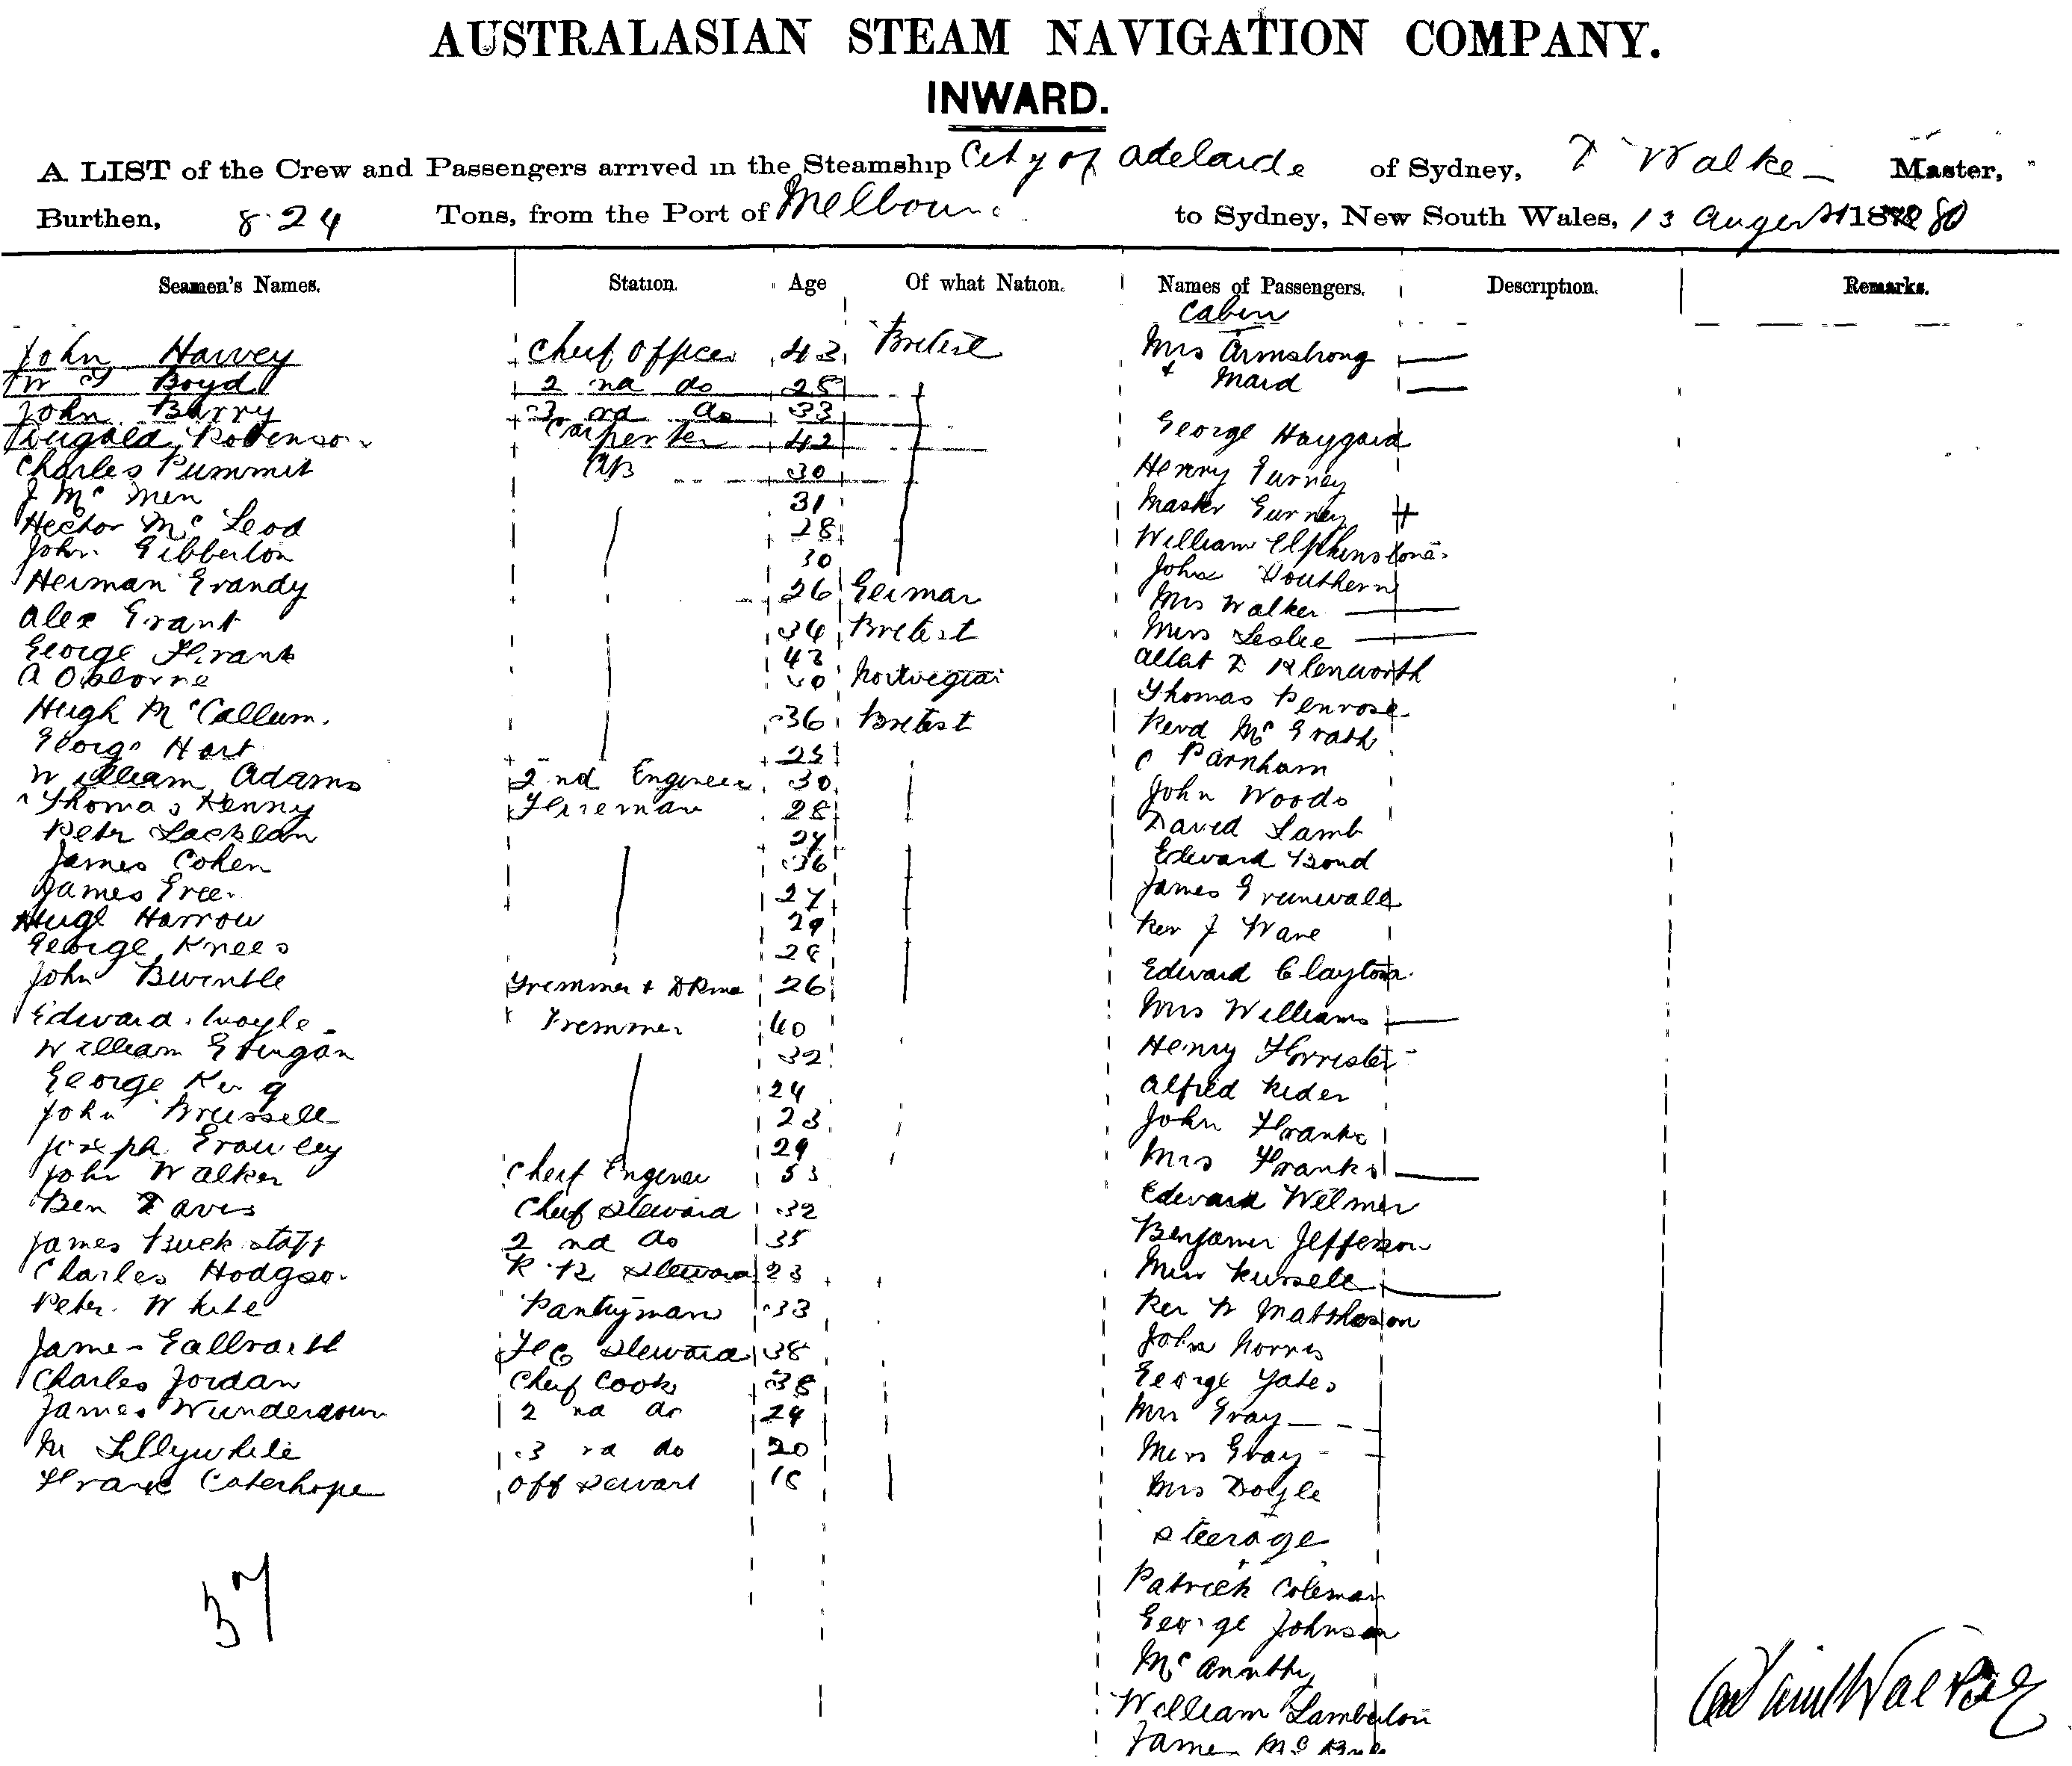 AUSTRALASIAN STEAM NAVIGATION COMPANY.
INWARD.
A LIST of the Crew and Passengers arrived in the Steamship City of Adelaide of Sydney, Walke Master,
Burthen, 824 Tons, from the Port of Melbourne to Sydney, New South Wales, 13 August 1880
Seamen's Names. Station. Age Of what Nation. Names of Passengers. Description. Remarks.
Cabin
John Harvey Chief Officer 43 British Mrs Armstrong
Boyd 2nd do 28 & Maid
John Barry 3rd do 33
Dugald Robinson Carpenter 42 George Haygard
Charles Pummit AB 30 Henry Gurney
J Mc Men 31 Master Gurney
Hector Mc Leod 28 William Elphinstone
John Gibberton 30 John Southern
Herman Grandy 26 German Mrs Walker
Alex Grant 34 British Miss Leslie
George Frank 43 Klenworth
A Osborne Norwegian Thomas Penrose
Hugh McCallum. 36 British Revd McGrath
George Hart 25 C Parnham
William Adams 2nd Engineer 30 John Woods
Thomas Kenny Fireman 28 David Lamb
Peter Lachlan 27 Edward Bond
James Cohen 36
James Gree 27 James Grunwald
Hugh Harrow 29 Rev J Ware
George Knees 28
John Bwintle Tremmer & 26 Edward Clayton
Edward Woyle Tremmer 40 Mrs Williams
William 32 Henry Forrester
George King 24 Alfred Rider
John Brussell 23 John Franks
Joseph Growley 29 Mrs Franks
John Walker Chief Engineer 53
Ben Davis Chief Steward 32 Edward Welmer
James Buckstaff 2nd do 35 Benjamin Jefferson
Charles Hodgson Steward 23 Miss Russell
Peter White Pantryman 33 Rev W Mattheson
James Gallraith Steward 38 John Norris
Charles Jordan Chief Cook 38 George Yates
James Wunderdown 2nd do 24 Mrs Gray
M Lillywhite 3rd do 20 Miss Gray
Frank Caterhope Off Stewart 18 Mrs Doyle
Steerage
37
Patrick Coleman
George Johnson
William Lamberton
James Mc
Captain Walker